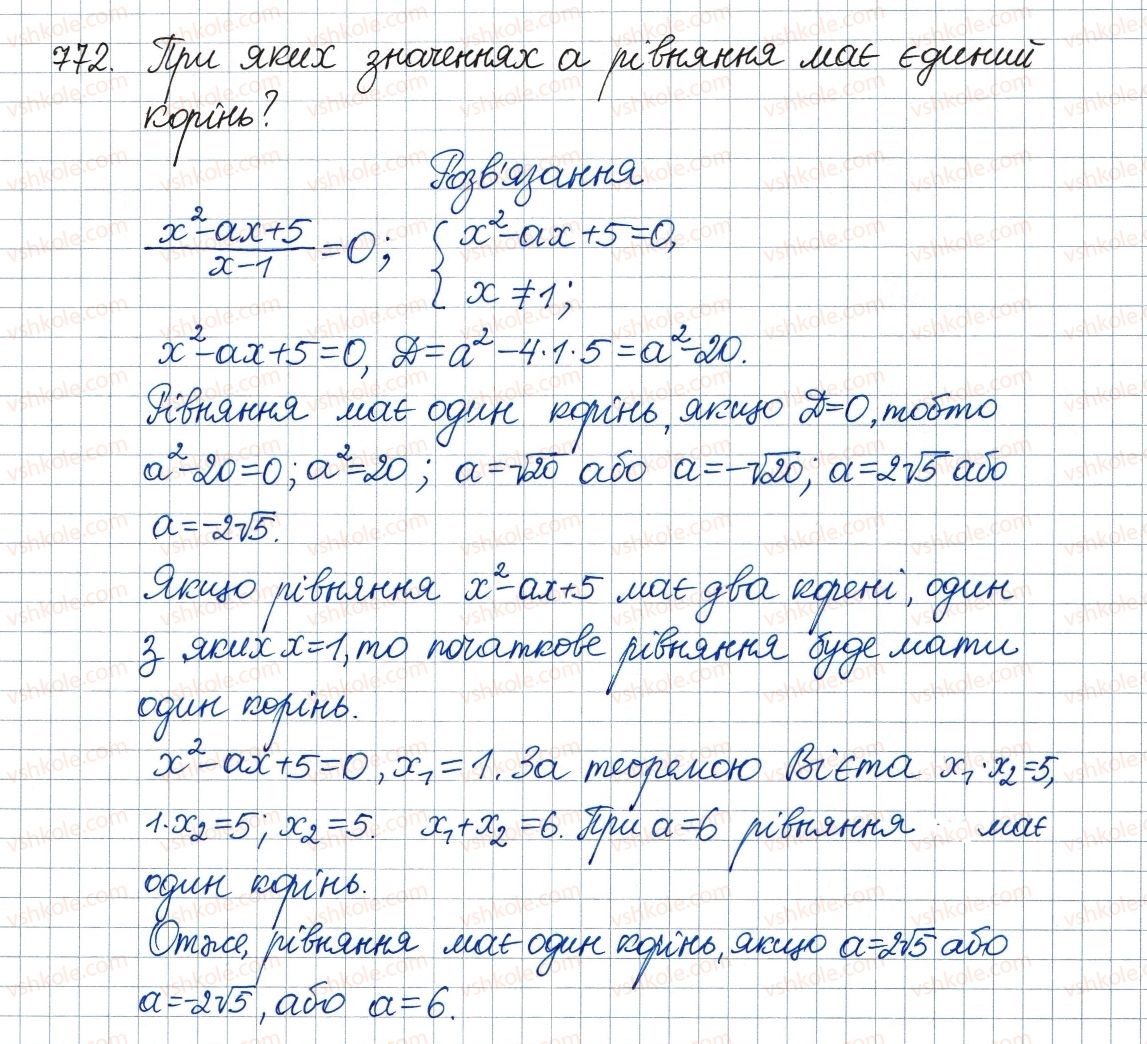 772. При яких значеннях a рівняння має єдиний
корінь?
Розв'язання
(x²-ax+5)/(x-1) = 0; { x²-ax+5=0,
x ≠ 1;
x²-ax+5=0, Д=a²-4·1·5=a²-20.
Рівняння має один корінь, якщо Д=0, тобто
a²-20=0; a²=20; a=√20 або a=-√20; a=2√5 або
a=-2√5.
Якщо рівняння x²-ax+5 має два корені, один
з яких x=1, то початкове рівняння буде мати
один корінь.
x²-ax+5=0, x₁=1. За теоремою Вієта x₁·x₂=5,
1·x₂=5; x₂=5. x₁+x₂=6. При a=6 рівняння має
один корінь.
Отже, рівняння має один корінь, якщо a=2√5 або
a=-2√5, або a=6.